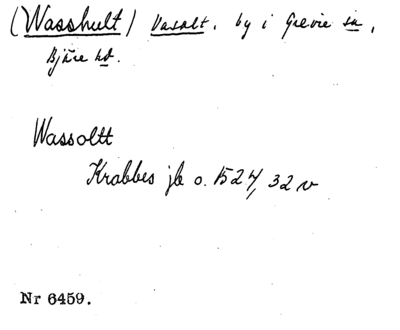 (Wasshult) Vasalt. by i Grevie sn,
Bjäre hd.
Wassoltt
Krabbes jb o. 1524, 32 v
Nr 6459.